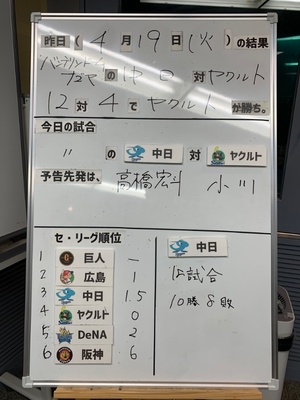 昨日(4月19日(火))の結果
バンテリンドームナゴヤの中日対ヤクルト
12対4でヤクルトが勝ち。
今日の試合
〃の中日対ヤクルト
予告先発は、高橋宏斗 小川
セ・リーグ順位
1 巨人 —
2 広島 1
3 中日 1.5
4 ヤクルト 0
5 DeNA 2
6 阪神 6
中日
18試合
10勝8敗